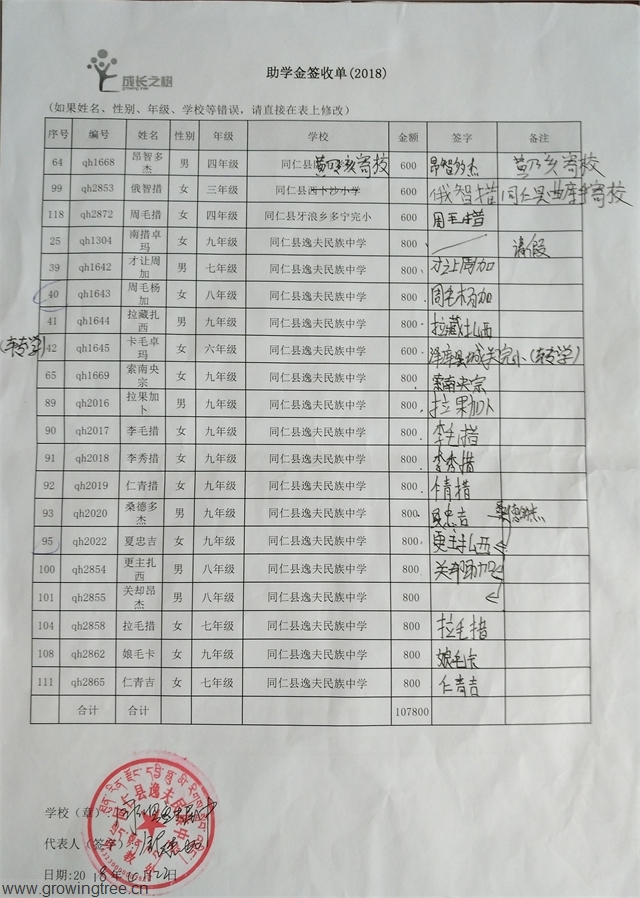 成长之树
助学金签收单(2018)
(如果姓名、性别、年级、学校等错误，请直接在表上修改)
序号 编号 姓名 性别 年级 学校 金额 签字 备注
64 qh1668 昂智多杰 男 四年级 同仁县 寄校 600 昂智多杰 寄校
99 qh2853 俄智措 女 三年级 同仁县西卜沙小学 600 俄智措 同仁县曲库乎寄校
118 qh2872 周毛措 女 四年级 同仁县牙浪乡多宁完小 600 周毛措
25 qh1304 南措卓玛 女 九年级 同仁县逸夫民族中学 800 请假
39 qh1642 才让周加 男 七年级 同仁县逸夫民族中学 800 才让周加
40 qh1643 周毛杨加 女 八年级 同仁县逸夫民族中学 800 周毛杨加
41 qh1644 拉藏扎西 男 九年级 同仁县逸夫民族中学 800 拉藏扎西
(转学) 42 qh1645 卡毛卓玛 女 六年级 同仁县逸夫民族中学 600 泽库县城关完小(转学)
65 qh1669 索南央宗 女 九年级 同仁县逸夫民族中学 800 索南央宗
89 qh2016 拉果加卜 男 九年级 同仁县逸夫民族中学 800 拉果加卜
90 qh2017 李毛措 女 九年级 同仁县逸夫民族中学 800 李毛措
91 qh2018 李秀措 女 九年级 同仁县逸夫民族中学 800 李秀措
92 qh2019 仁青措 女 九年级 同仁县逸夫民族中学 800 仁青措
93 qh2020 桑德多杰 男 九年级 同仁县逸夫民族中学 800 夏忠吉 桑德多杰
95 qh2022 夏忠吉 女 九年级 同仁县逸夫民族中学 800 更主扎西
100 qh2854 更主扎西 男 八年级 同仁县逸夫民族中学 800 关却
101 qh2855 关却昂杰 男 八年级 同仁县逸夫民族中学 800
104 qh2858 拉毛措 女 七年级 同仁县逸夫民族中学 800 拉毛措
108 qh2862 娘毛卡 女 九年级 同仁县逸夫民族中学 800 娘毛卡
111 qh2865 仁青吉 女 七年级 同仁县逸夫民族中学 800 仁青吉
合计 合计 107800
学校（章）:
代表人（签字）:
日期:2018年10月22日
www.growingtree.cn